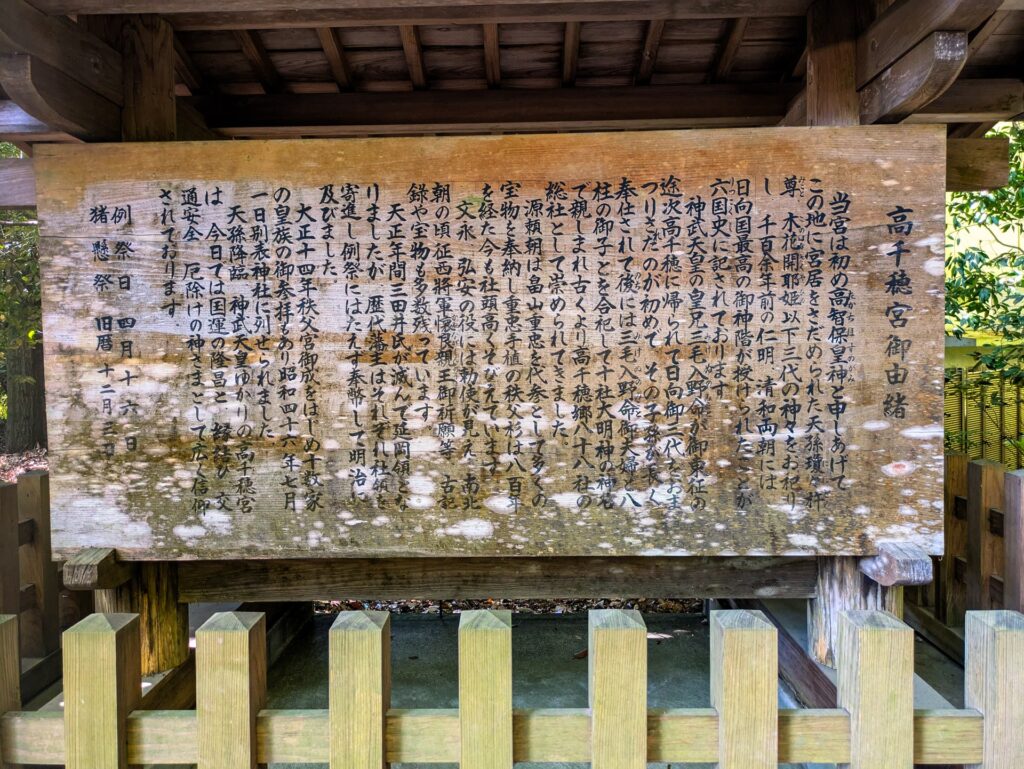 高千穂宮御由緒
当宮は初め高智保皇神と申しあげて
この地に宮居をさだめられた天孫瓊々杵
尊 木花開耶姫以下三代の神々をお祀り
し 千百余年前の仁明 清和両朝には
日向国最高の御神階が授けられたことが
六国史に記されております
神武天皇の皇兄三毛入野命が御東征の
途次高千穂に帰られて日向御三代をお
つりさだめたのが初めで その子孫が長く
奉仕されて後には三毛入野命御夫婦と八
柱の御子とを合祀して十社大明神の神名
で親しまれ古くより高千穂郷八十八社の
総社として崇められてきました
源頼朝は畠山重忠を代参として多くの
宝物を奉納し重忠手植の秩父杉は八百年
を経た今も社頭高くそびえています
文永 弘安の役には勅使が見え 南北
朝の頃征西将軍懐良親王御祈願等 古記
録や宝物も多数残っています
天正年間三田井氏が滅んで延岡領とな
りましたが 歴代藩主はそれぞれ社領を
寄進し例祭にはたえず奉幣して明治に
及びました
大正十四年秩父宮御成をはじめ十数家
の皇族の御参拝もあり昭和四十六年七月
一日別表神社に列せられました
天孫降臨 神武天皇ゆかりの高千穂宮
は 今日では国運の隆昌と 縁結び 交
通安全 厄除けの神さまとして広く信仰
されております
例祭日 四月十六日
猪懸祭 旧暦十二月三日